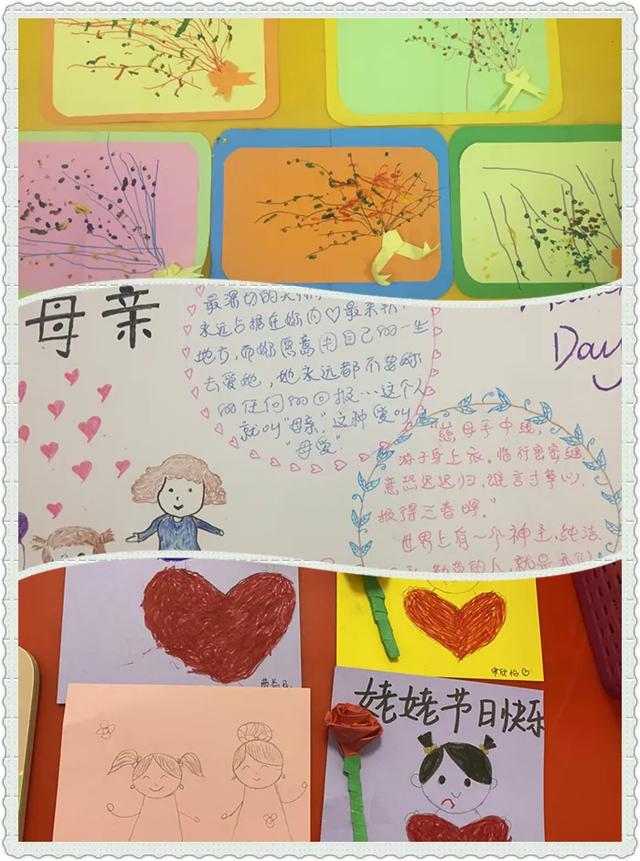 母亲
永远占据在你内♡最亲
地方,而她愿意用自己的一生
去爱她,她永远都不要
的任何的回报…这个人
就叫“母亲”,这种爱叫
“母爱”
Day
“慈母手中线,
游子身上衣。临行密密缝
意恐迟迟归,谁言寸草心,
报得三春晖。”
世界上有一个神圣,纯洁
勤劳的人,就是我们
姥姥节日快乐